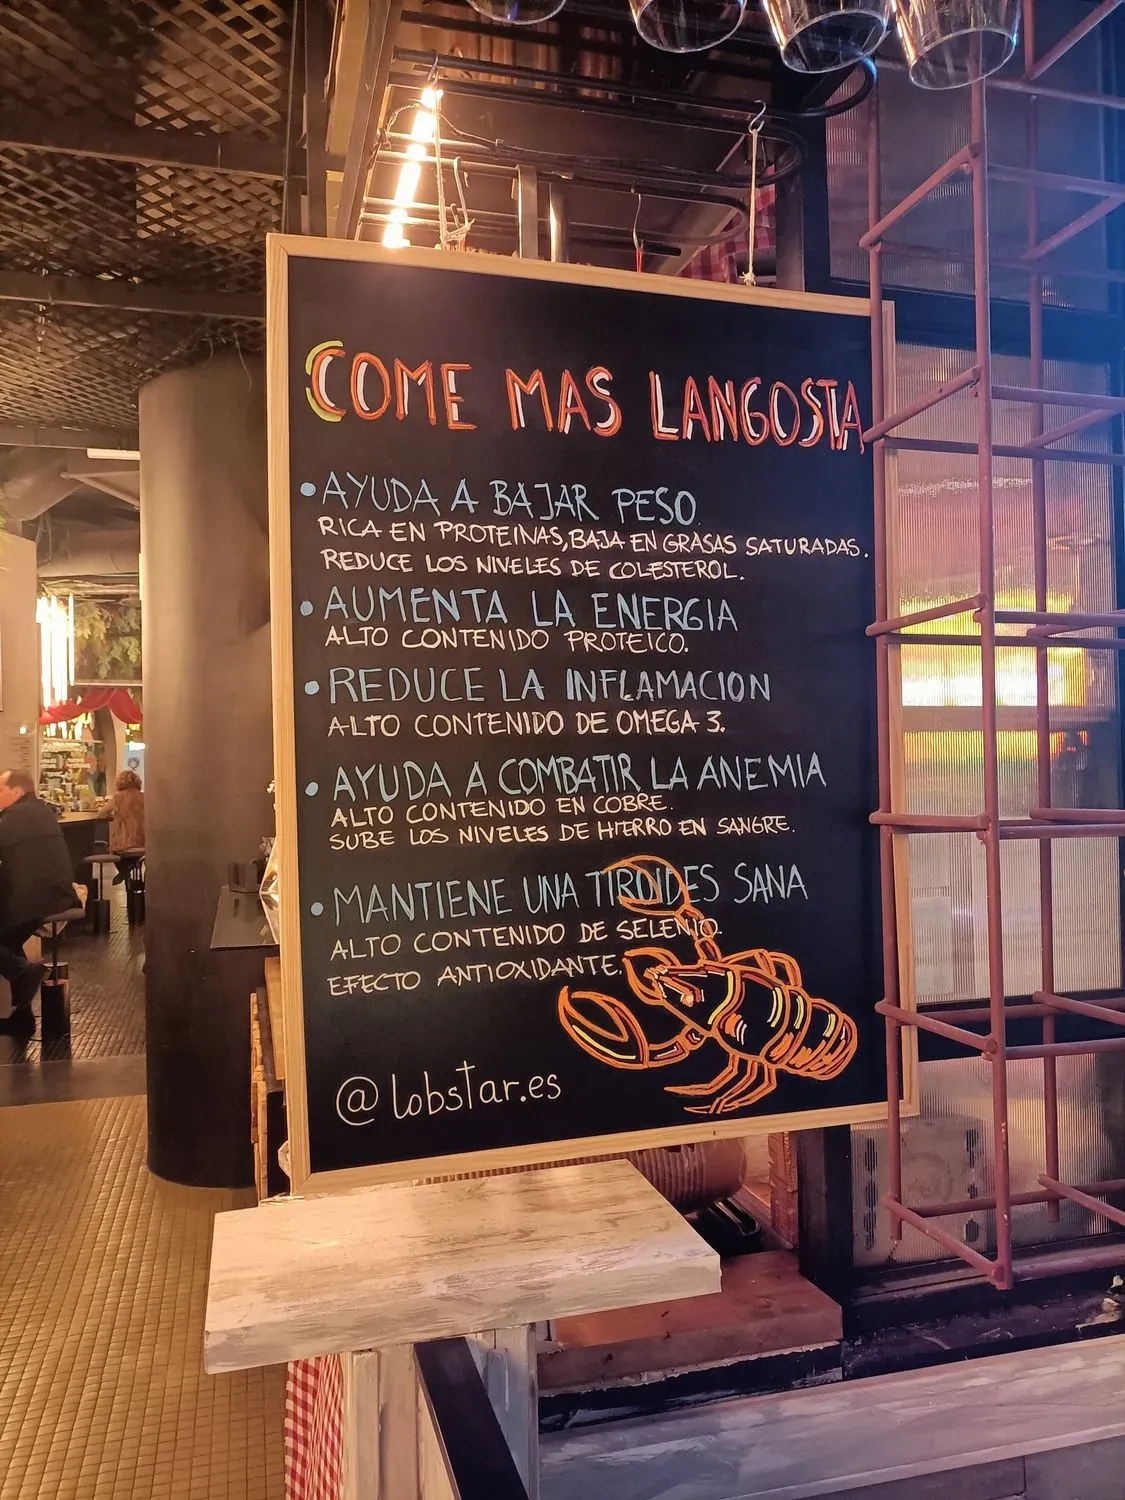 COME MAS LANGOSTA
• AYUDA A BAJAR PESO
RICA EN PROTEINAS, BAJA EN GRASAS SATURADAS.
REDUCE LOS NIVELES DE COLESTEROL.
• AUMENTA LA ENERGIA
ALTO CONTENIDO PROTEICO.
• REDUCE LA INFLAMACION
ALTO CONTENIDO DE OMEGA 3.
• AYUDA A COMBATIR LA ANEMIA
ALTO CONTENIDO EN COBRE.
SUBE LOS NIVELES DE HIERRO EN SANGRE.
• MANTIENE UNA TIROIDES SANA
ALTO CONTENIDO DE SELENIO.
EFECTO ANTIOXIDANTE.
@lobstar.es